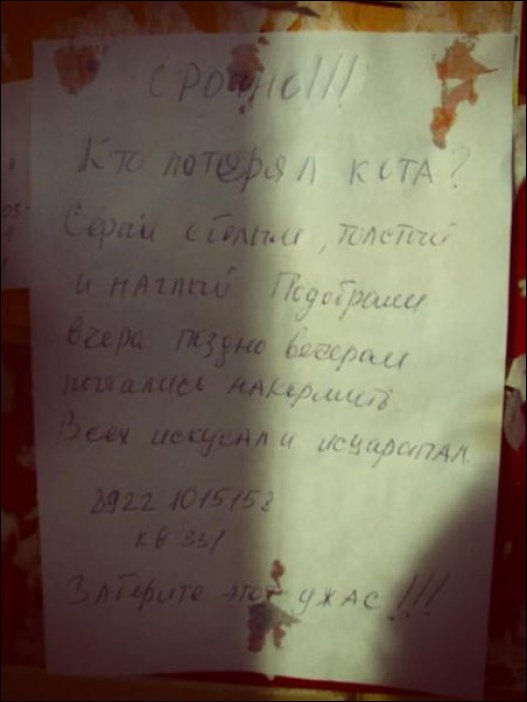 СРОЧНО!!!
Кто потерял кота?
Серый с белым, толстый
и наглый Подобрали
вчера поздно вечерам
пытались накормить.
Всех искусал и исцарапал.
89221015158
кв 331
Заберите этот ужас!!!